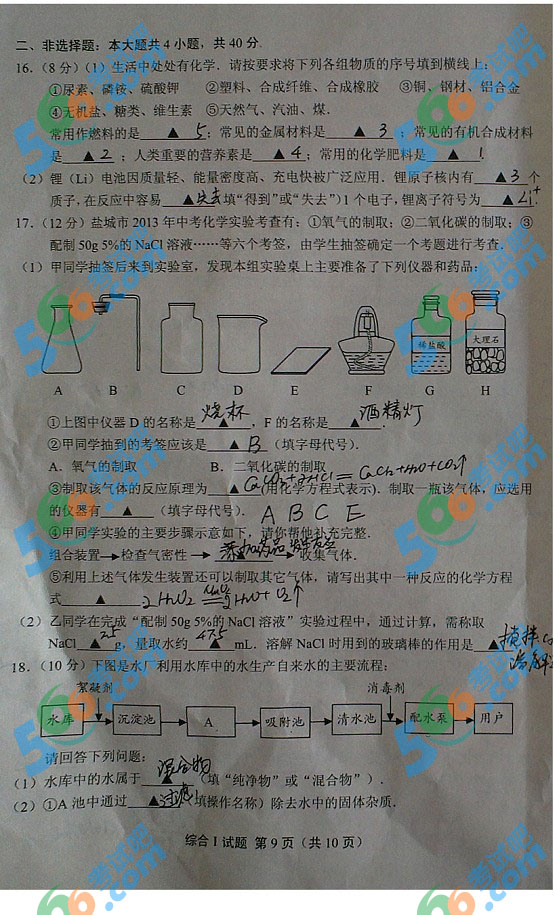 二、非选择题：本大题共 4 小题，共 40 分.
16.（8 分）（1）生活中处处有化学．请按要求将下列各组物质的序号填到横线上：
①尿素、磷铵、硫酸钾 ②塑料、合成纤维、合成橡胶 ③铜、钢材、铝合金
④无机盐、糖类、维生素 ⑤天然气、汽油、煤.
常用作燃料的是 ▲ 5；常见的金属材料是 ▲ 3；常见的有机合成材料
是 ▲ 2；人类重要的营养素是 ▲ 4；常用的化学肥料是 ▲ 1.
（2）锂（Li）电池因质量轻、能量密度高、充电快被广泛应用．锂原子核内有 ▲ 3 个
质子,在反应中容易 ▲失去 填“得到”或“失去”）1 个电子,锂离子符号为 ▲ Li⁺.
17.（12 分）盐城市 2013 年中考化学实验考查有：①氧气的制取；②二氧化碳的制取；③
配制 50g 5%的 NaCl 溶液……等六个考签，由学生抽签确定一个考题进行考查.
（1）甲同学抽签后来到实验室，发现本组实验桌上主要准备了下列仪器和药品：
稀盐酸 大理石
A B C D E F G H
①上图中仪器 D 的名称是 ▲ 烧杯，F 的名称是 ▲ 酒精灯.
②甲同学抽到的考签应该是 ▲ B （填字母代号）.
A．氧气的制取 B．二氧化碳的制取
③制取该气体的反应原理为 ▲ CaCO₃+2HCl=CaCl₂+H₂O+CO₂↑ (用化学方程式表示)．制取一瓶该气体，应选用
的仪器有 ▲ （填字母代号）. A B C E
④甲同学实验的主要步骤示意如下，请你帮他补充完整.
组合装置→检查气密性→ ▲ 收集气体.
⑤利用上述气体发生装置还可以制取其它气体，请写出其中一种反应的化学方程
式 ▲ 2H₂O₂ MnO₂ = 2H₂O+O₂↑
（2）乙同学在完成“配制 50g 5%的 NaCl 溶液”实验过程中，通过计算，需称取
NaCl ▲ 2.5 g，量取水约 ▲ 47.5 mL．溶解 NaCl 时用到的玻璃棒的作用是 ▲ 搅拌
溶解
18.（10 分）下图是水厂利用水库中的水生产自来水的主要流程：
絮凝剂 消毒剂
水库 沉淀池 A 吸附池 清水池 配水泵 用户
请回答下列问题：
（1）水库中的水属于 ▲ 混合物（填“纯净物”或“混合物”）.
（2）①A 池中通过 ▲过滤（填操作名称）除去水中的固体杂质.
综合 I 试题 第 9 页（共 10 页）
566考试吧.com